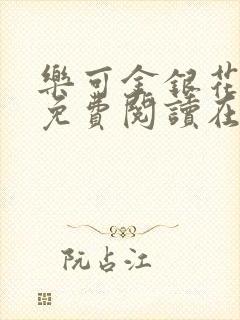 樂可金銀花
免費閱讀在
阮占江